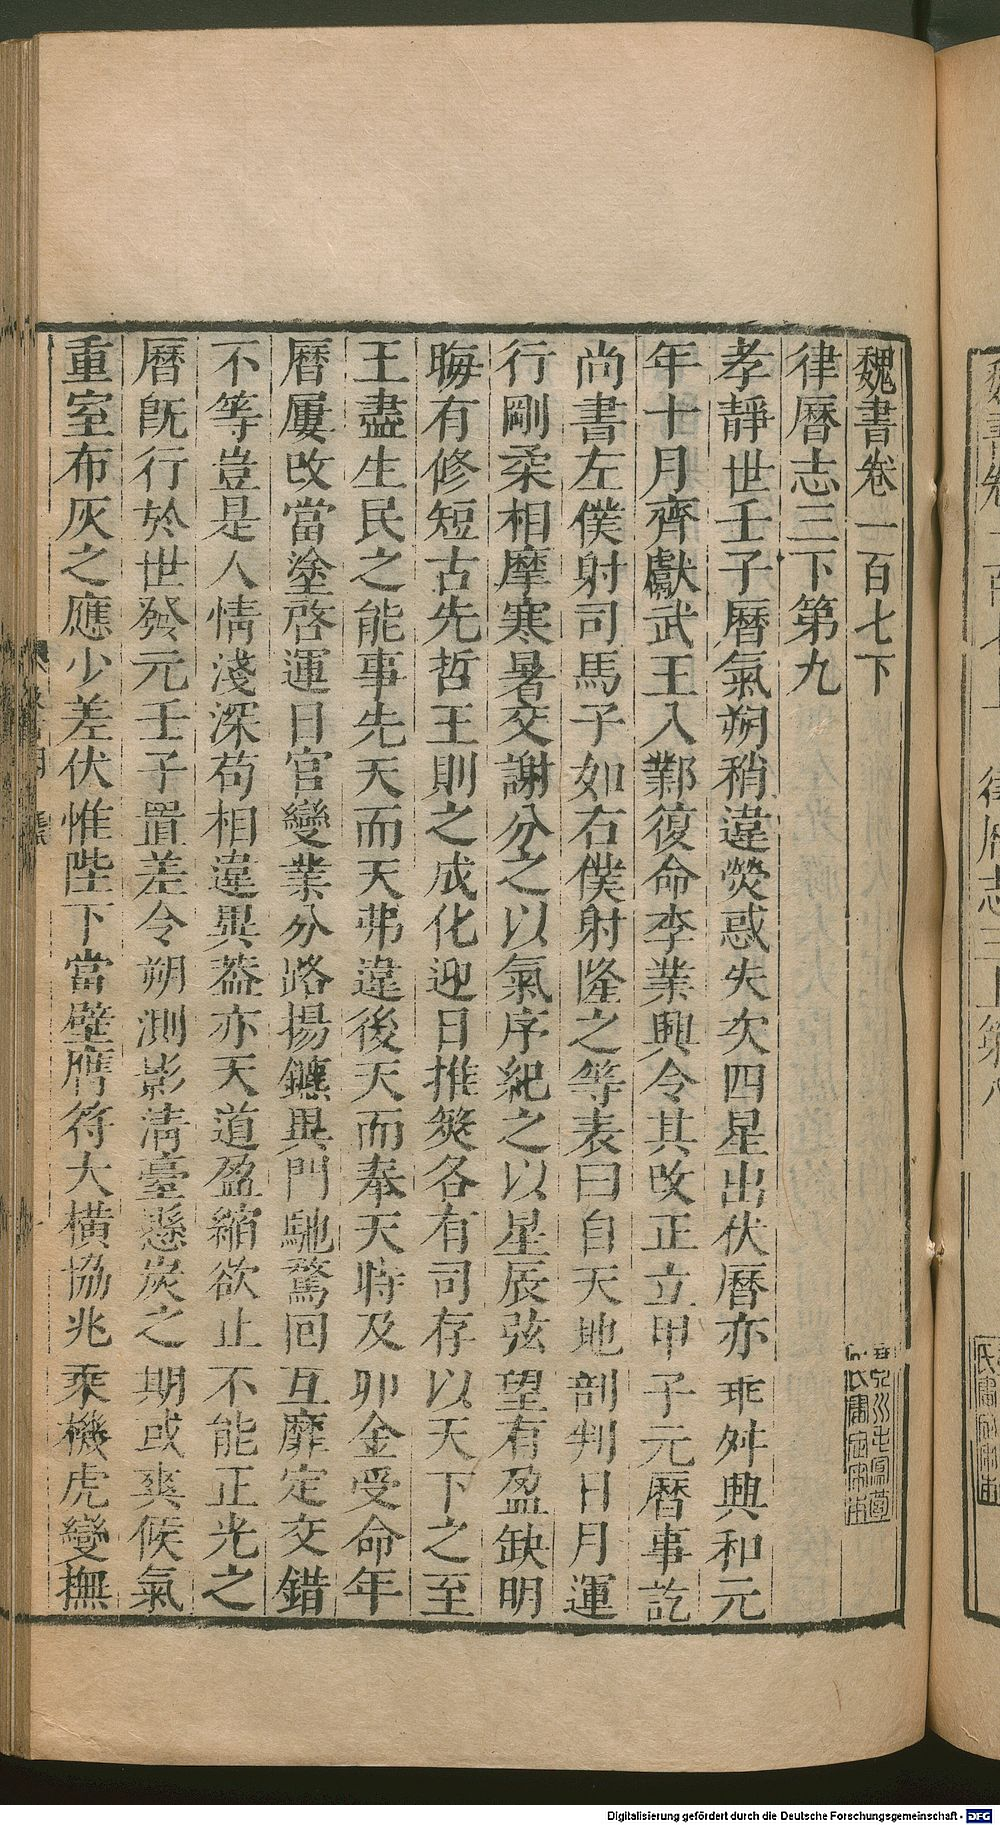 魏書卷一百七下
律曆志三下第九
孝靜世壬子曆氣朔稍違熒惑失次四星出伏曆亦乖舛興和元
年十月齊獻武王入鄴復命李業興令其改正立甲子元曆事訖
尚書左僕射司馬子如右僕射隆之等表曰自天地剖判日月運
行剛柔相摩寒暑交謝分之以氣序紀之以星辰弦望有盈缺明
晦有修短古先哲王則之成化迎日推筴各有司存以天下之至
王盡生民之能事先天而天弗違後天而奉天時及卯金受命年
曆屢改當塗啓運日官變業分路揚鑣異門馳騖回互靡定交錯
不等豈是人情淺深苟相違異蓋亦天道盈縮欲止不能正光之
曆既行於世發元壬子置差令朔測影清臺懸炭之期或爽候氣
重室布灰之應少差伏惟陛下當璧膺符大橫協兆乘機虎變撫
Digitalisierung gefördert durch die Deutsche Forschungsgemeinschaft - DFG